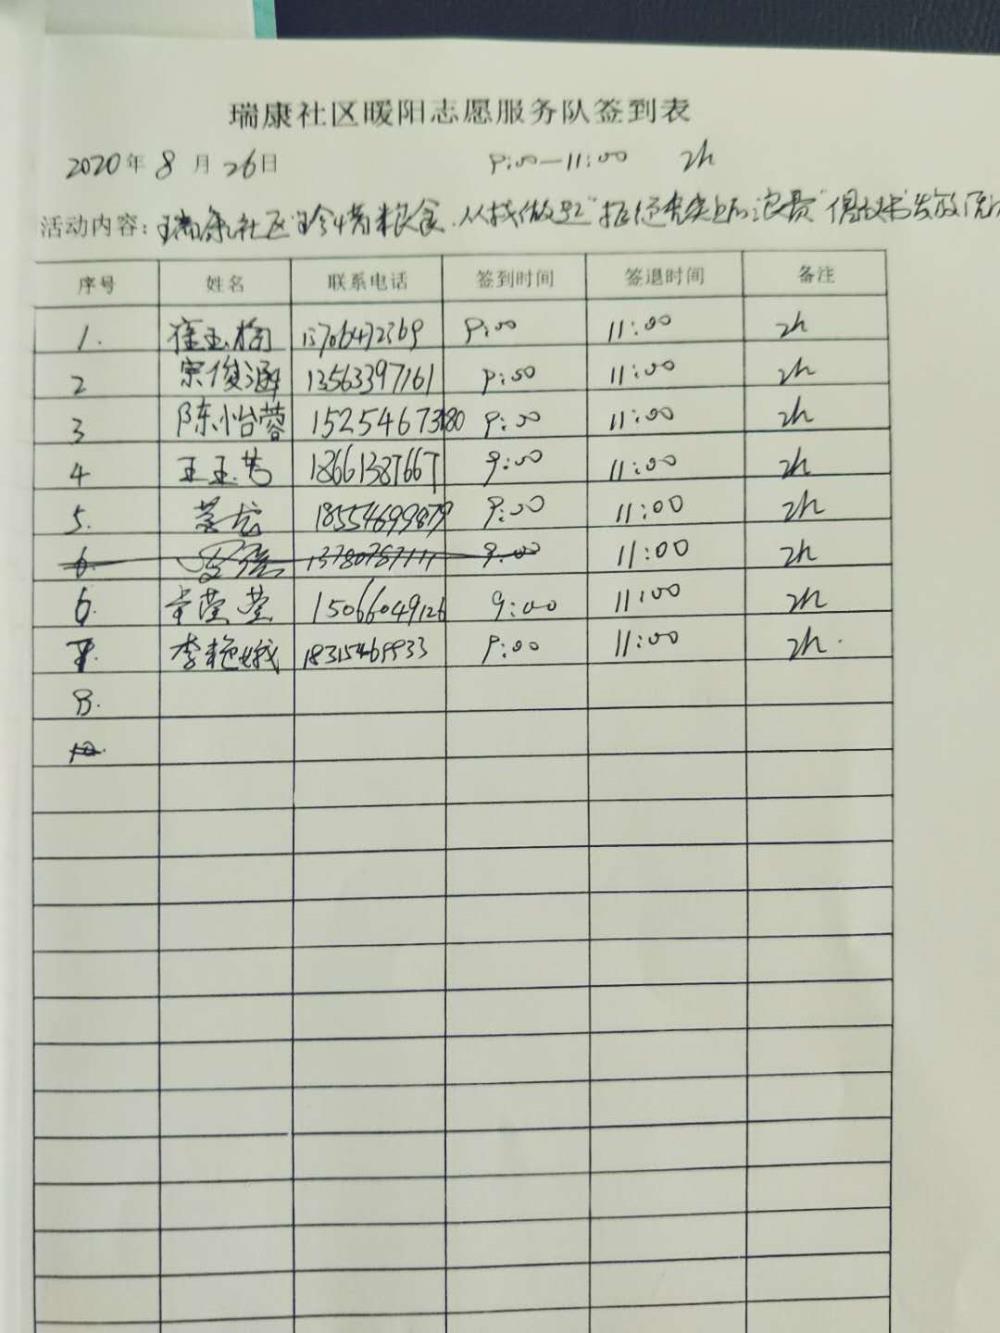 瑞康社区暖阳志愿服务队签到表
2020年8月26日 9:00—11:00 2h
活动内容：瑞康社区"珍惜粮食.从我做起"拒绝舌尖上的浪费"倡议书发放活
序号 姓名 联系电话 签到时间 签退时间 备注
1. 13706472369 9:00 11:00 2h
2 宗俊涵 13563397161 9:00 11:00 2h
3 陈怡蓉 15254673180 9:00 11:00 2h
4 王玉 18661387667 9:00 11:00 2h
5. 18554699879 9:00 11:00 2h
6 13780787111 9:00 11:00 2h
6. 莹莹 15066049126 9:00 11:00 2h
7. 李艳娥 18315469933 9:00 11:00 2h.
8.